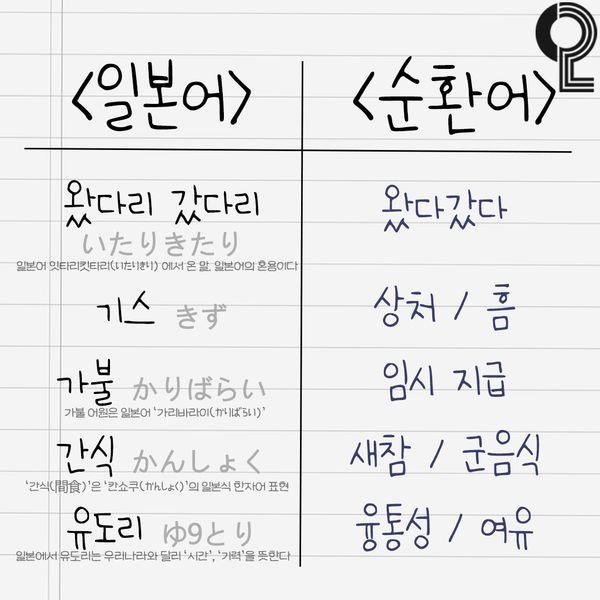 <일본어> <순환어>
왔다리 갔다리 왔다갔다
いたりきたり
일본어 잇타리킷타리(いたりきたり) 에서 온 말, 일본어의 혼용이다
기스 きず 상처 / 흠
가불 かりばらい 임시 지급
가불 어원은 일본어 '가리바라이(かりばらい)'
간식 かんしょく 새참 / 군음식
'간식(間食)'은 '칸쇼쿠(かんしょく)'의 일본식 한자어 표현
유도리 ゆ9とり 융통성 / 여유
일본에서 유도리는 우리나라와 달리 '시간', '가력'을 뜻한다